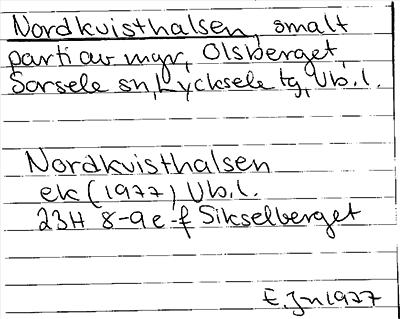 Nordkvisthalsen, smalt
parti av mgr, Olsberget,
Sorsele sn, Lycksele tg, Vb.l.
Nordkvisthalsen
ek (1977) Vb.l.
23H 8-9e-f Sikselberget
E.Jn 1977